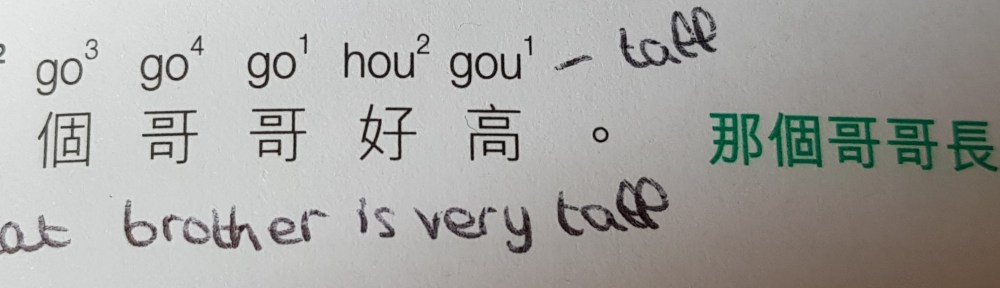 go³ go⁴ go¹ hou² gou¹ - tall
個 哥 哥 好 高 。 那個哥哥長
at brother is very tall